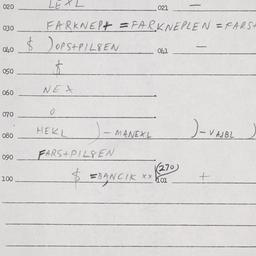 020 LEXL 021 —
030 FARKNEPt = FARKNEPLEN = FARS+
040 $ )OPS+PILSEN 041 —
050 $
060 NEX
070 0
080 HEKL )- MANEXL )- VAJBL )
090 FARS+PILSEN
100 $ = BANCIK xx (270) 101 +